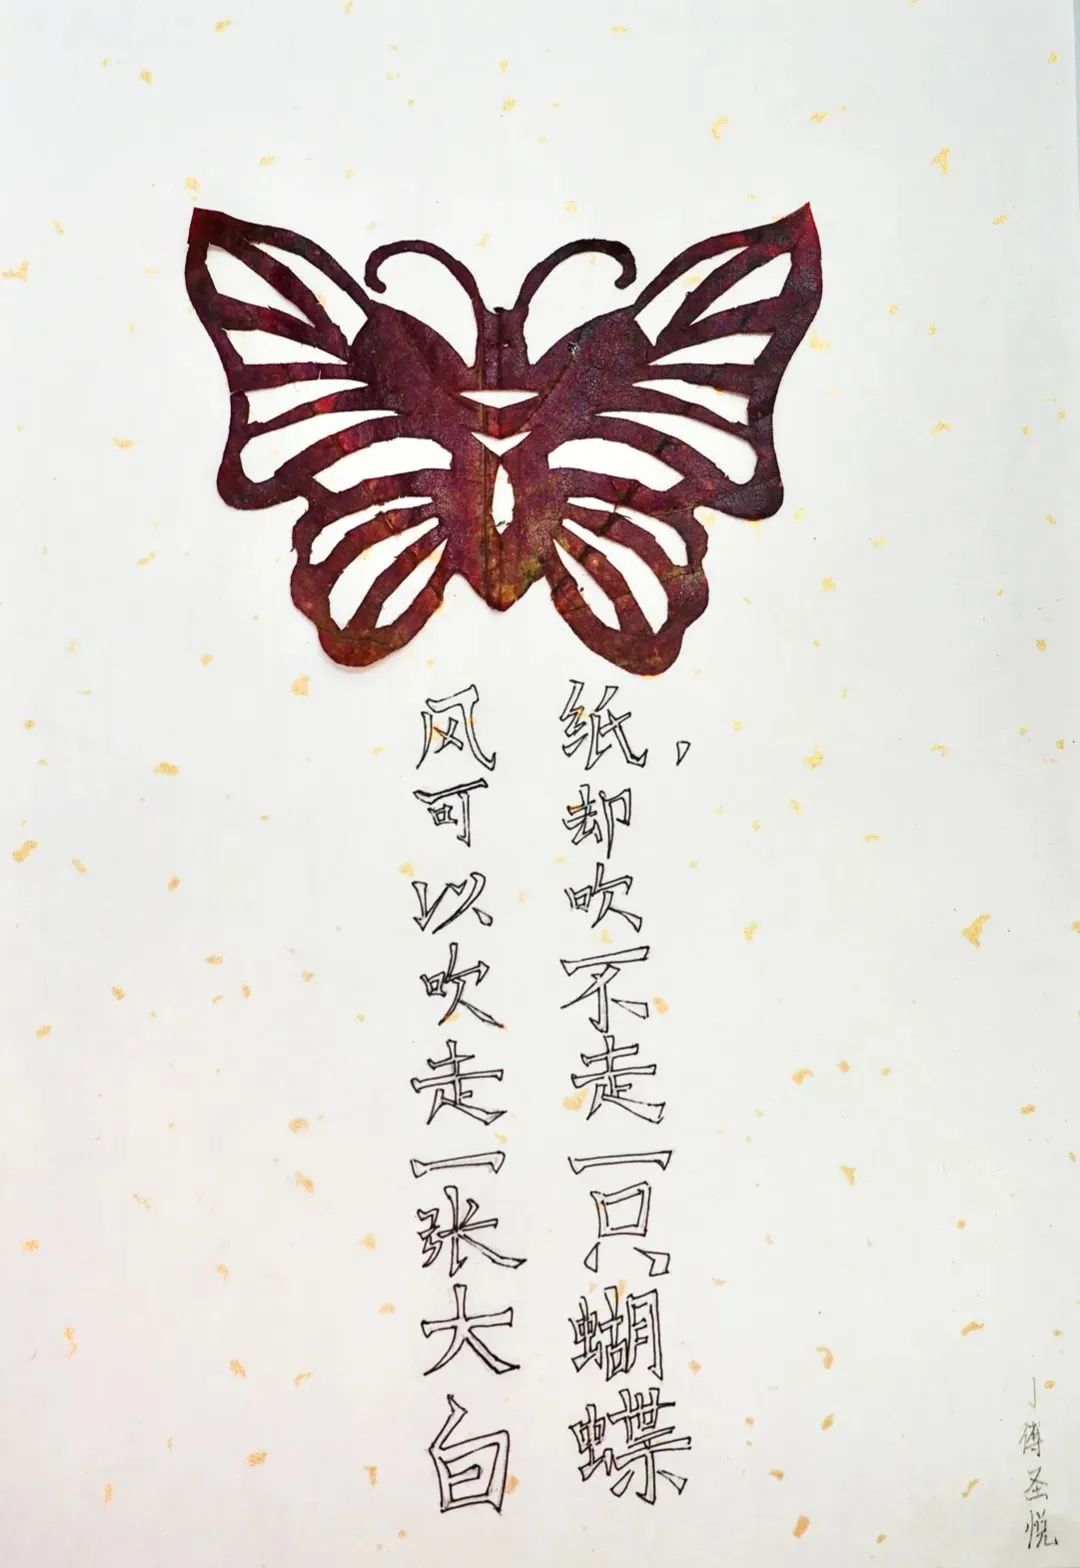 风可以吹走一张大白
纸，却吹不走一只蝴蝶
—傅圣悦